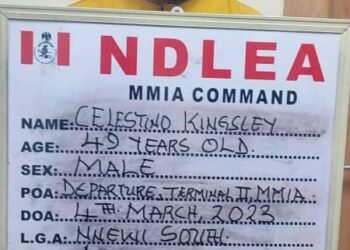 NDLEA
MMIA COMMAND
NAME: CELESTINO KINGSLEY
AGE: 49 YEARS OLD.
SEX: MALE
POA: DEPARTURE, TERMINAL II, MMIA.
DOA: 4TH MARCH, 2023
L.G.A: NNEWI SOUTH